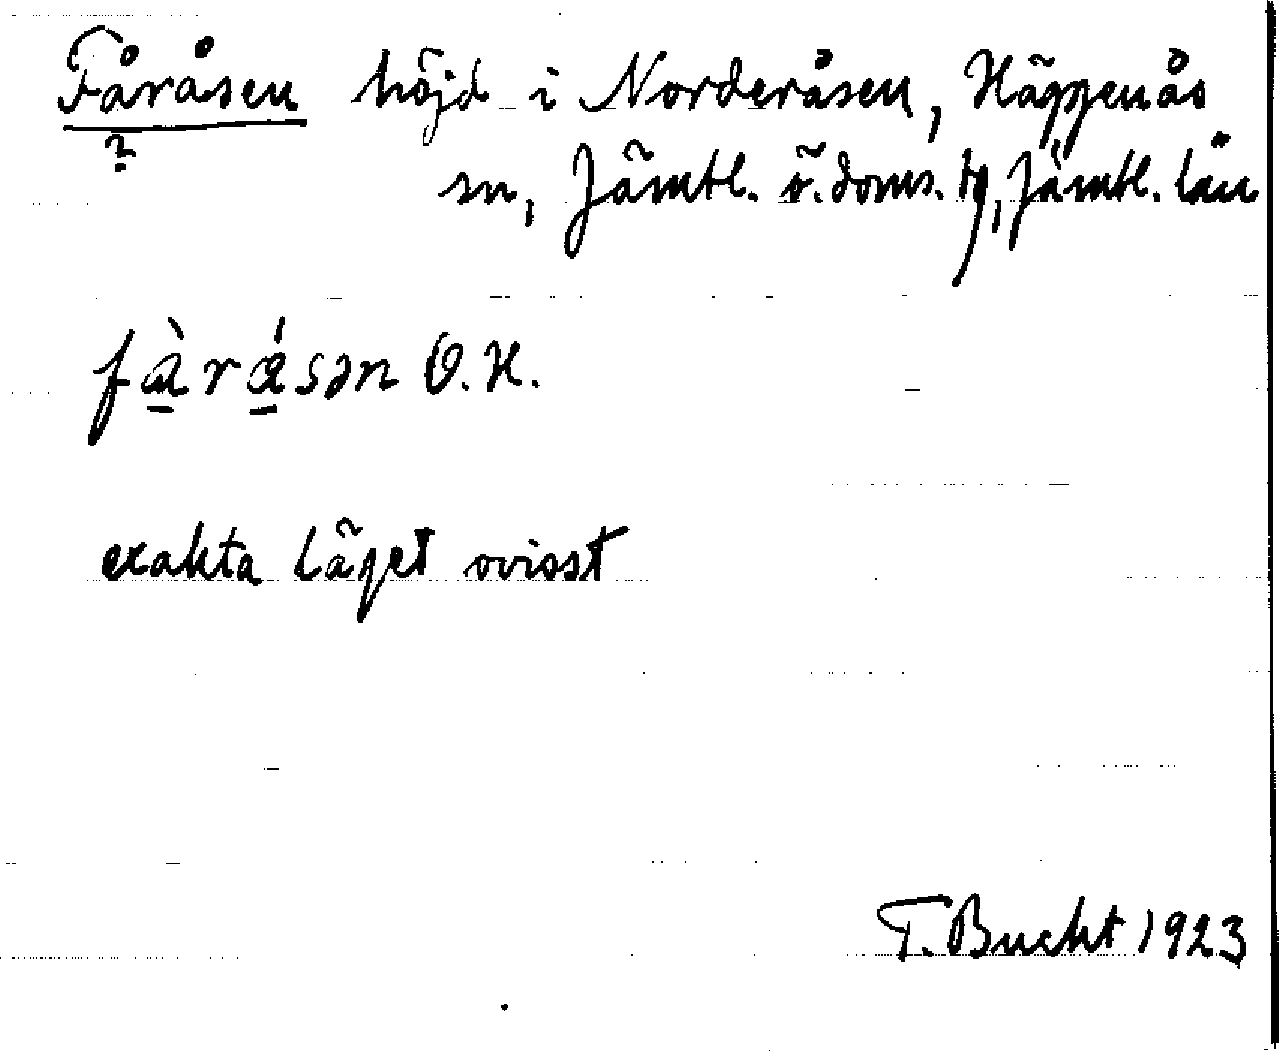 Fåråsen höjd i Norderåsen, Häggenås
?
sn, Jämtl. ö. doms. tg, Jämtl. län
fàrásən O.H.
exakta läget ovisst
T. Bucht 1923